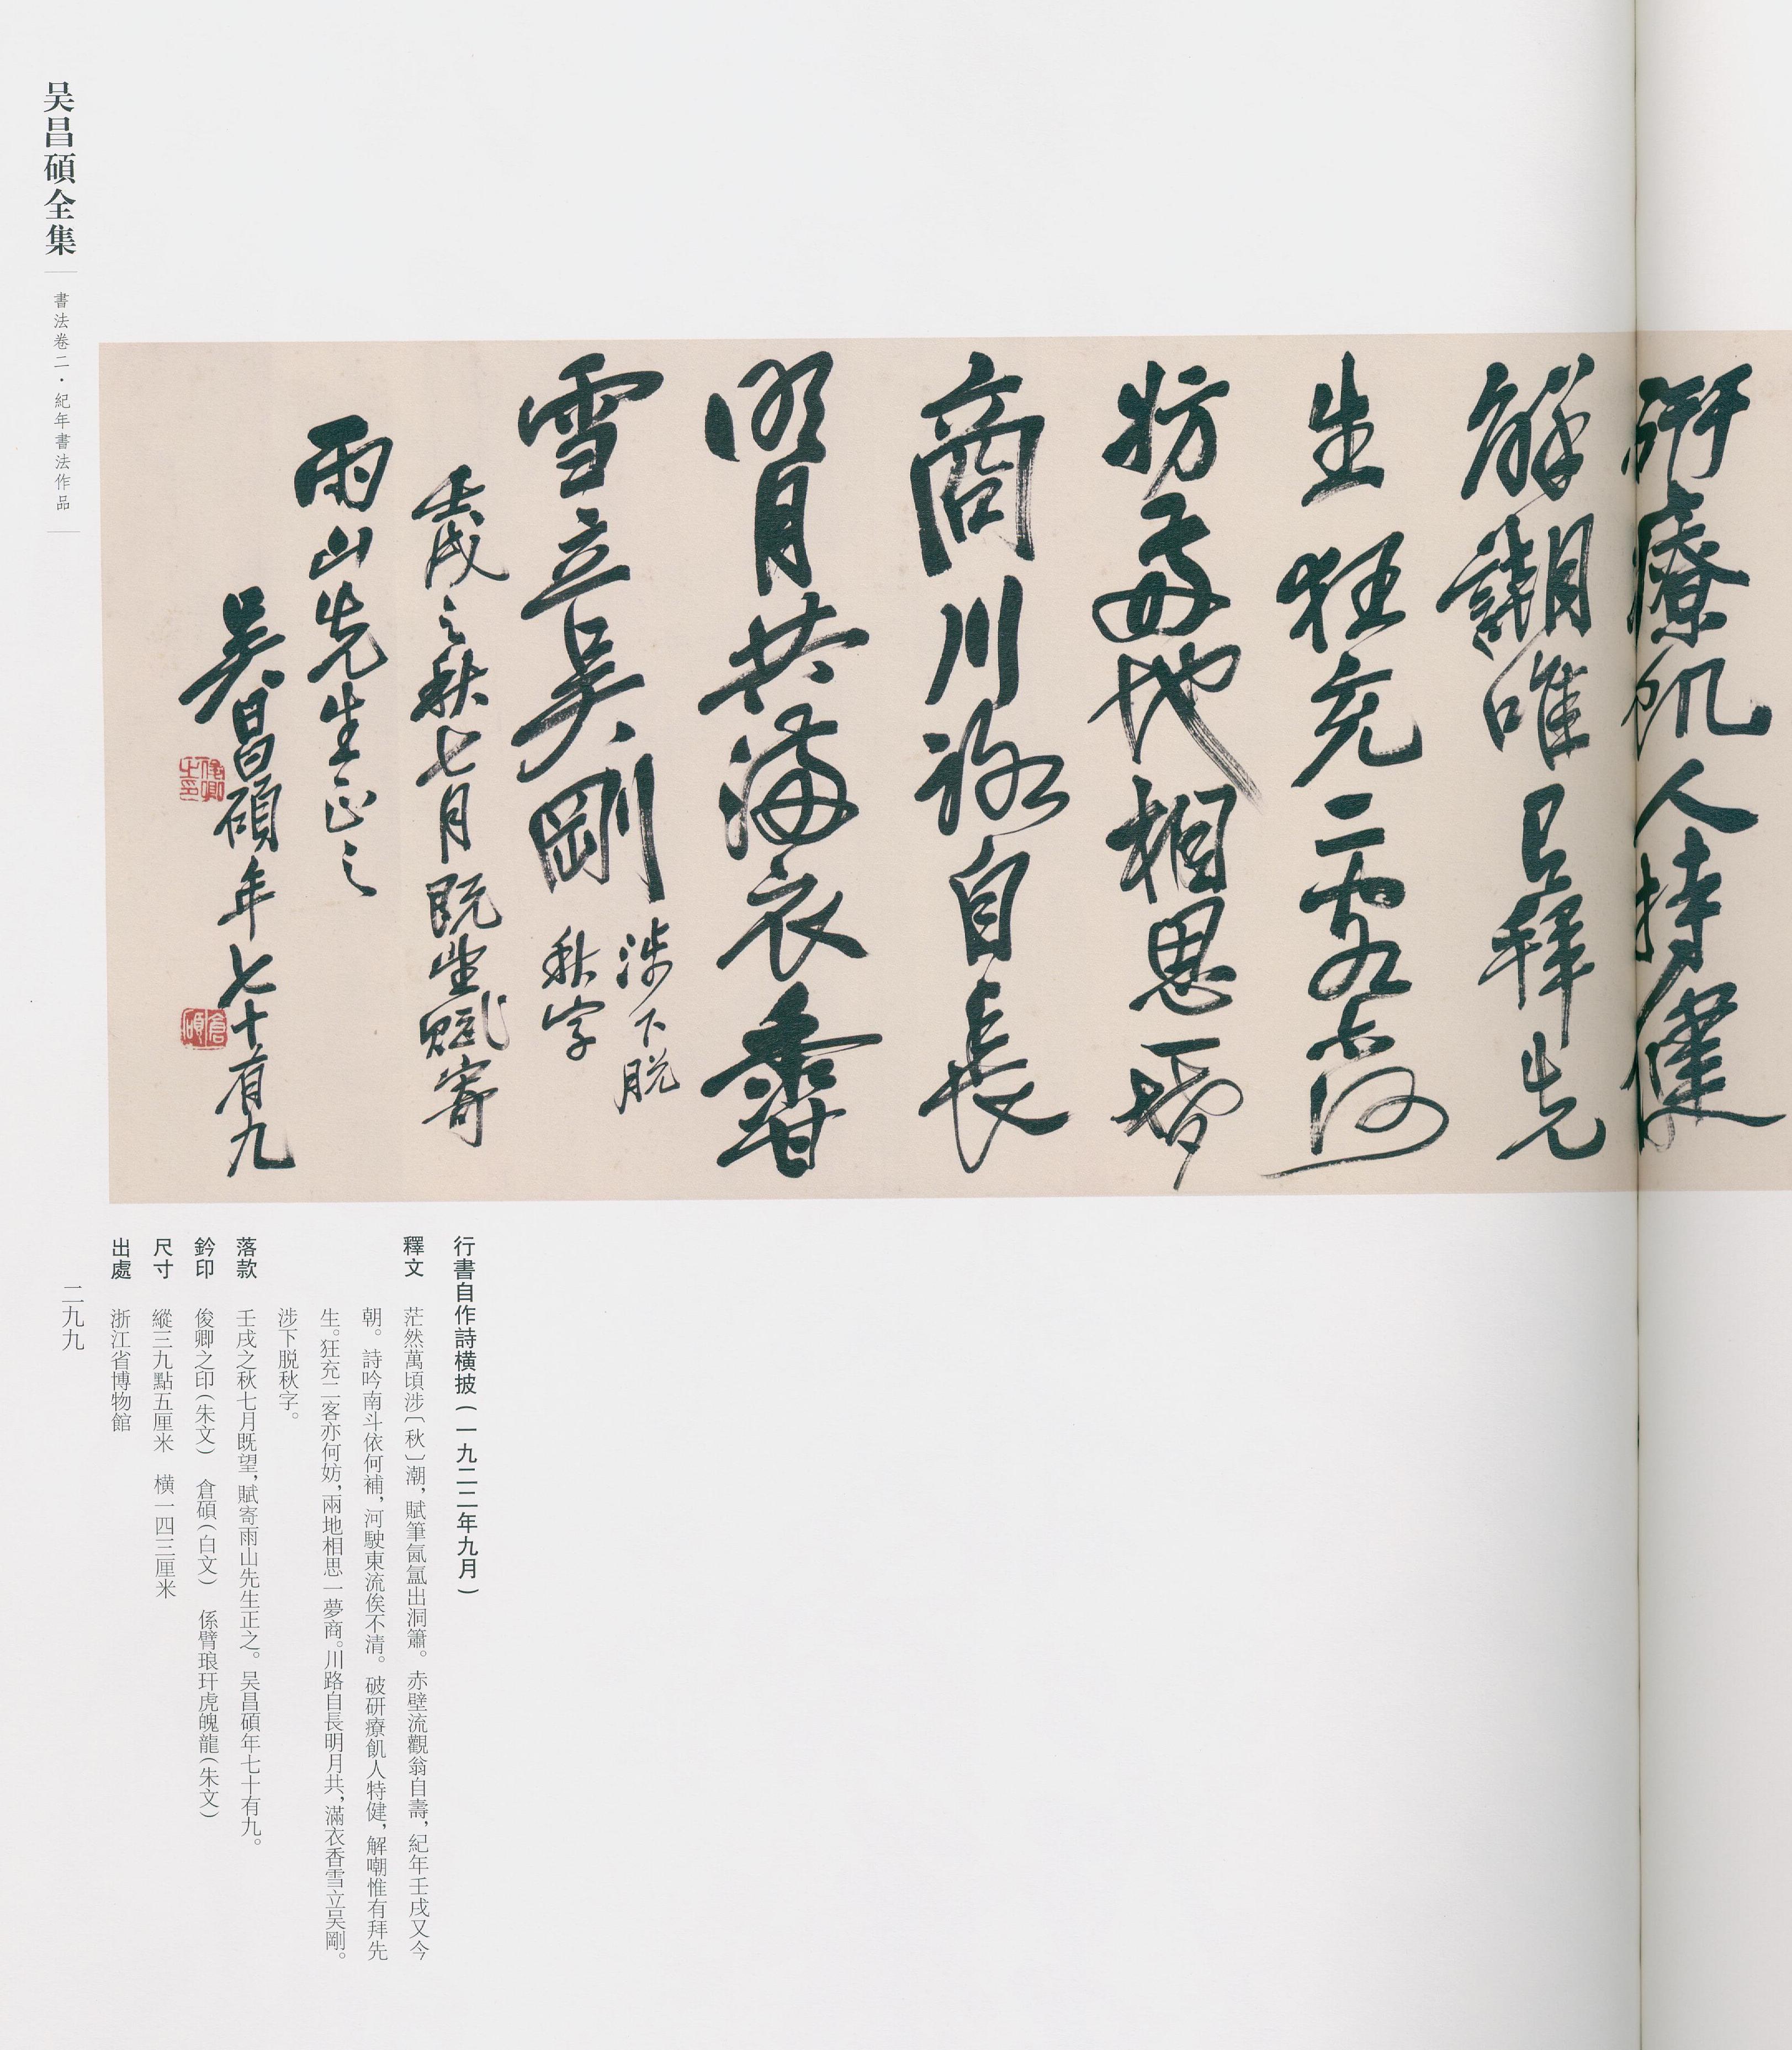 研療飢人特健
解嘲唯㠯拜先
生狂充二客亦何
妨兩地相思一夢
商川路自長
明月共滿衣香
雪立吳剛
涉下脱
秋字
壬戌之秋七月既望賦寄
雨山先生正之
吳昌碩年七十有九
俊卿之印
倉碩
行書自作詩横披(一九二二年九月)
釋文 茫然萬頃涉〔秋〕潮,賦筆氤氲出洞簫。赤壁流觀翁自壽,紀年壬戌又今
朝。詩吟南斗依何補,河駛東流俟不清。破研療飢人特健,解嘲惟有拜先
生。狂充二客亦何妨,兩地相思一夢商。川路自長明月共,滿衣香雪立吴剛。
涉下脱秋字。
落款 壬戌之秋七月既望,賦寄雨山先生正之。吴昌碩年七十有九。
鈐印 俊卿之印(朱文) 倉碩(白文) 係臂琅玕虎魄龍(朱文)
尺寸 縱三九點五厘米 横一四三厘米
出處 浙江省博物館
吴昌碩全集
書法卷二·紀年書法作品
二九九